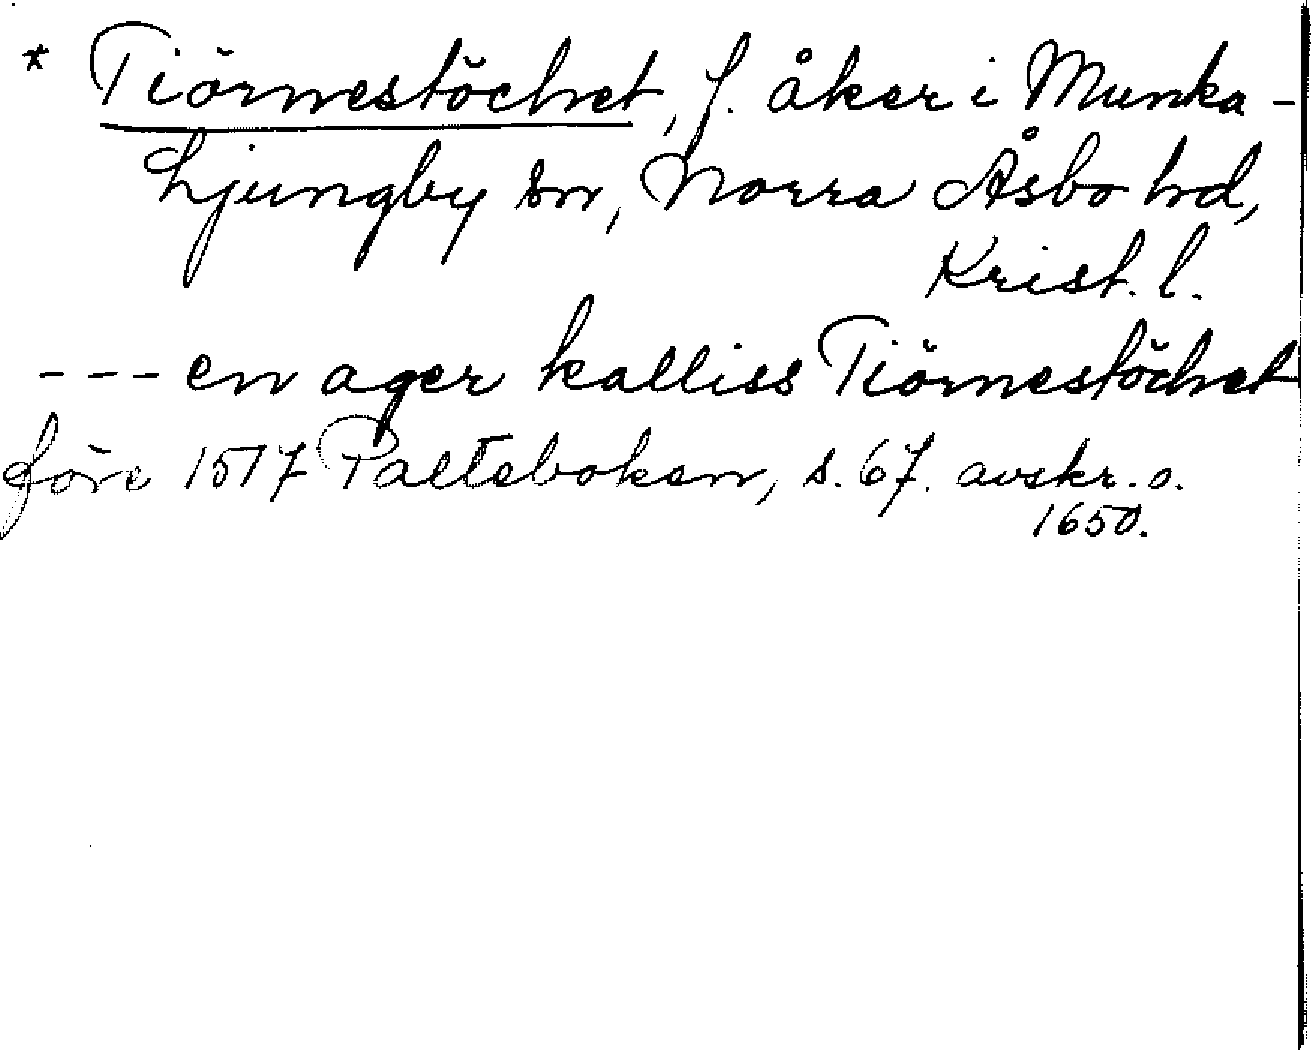 * Tiörnestöchet, f. åker i Munka-
Ljungby sn, Norra Åsbo hd,
Krist. l.
--- en ager kalliss Tiörnestöchet
före 1517 Palteboken, s. 67. avskr. o.
1650.